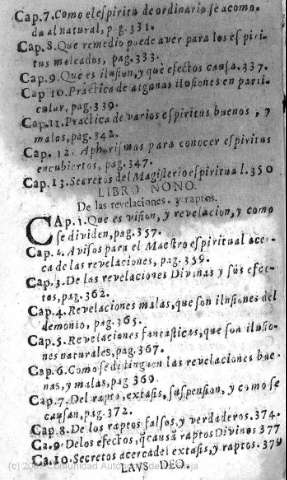 Cap.7.Como el espiritu de ordinario se acomo-
da al natural, pag.331.
Cap.8.Que remedio puede aver para los espiri-
tus mezcados, pag.333.
Cap.9.Que es ilusion, y que efectos causa.337.
Cap 10.Practica de algunas ilusiones en parti-
cular, pag.339.
Cap.11.Practica de varios espiritus buenos, y
malos, pag.342.
Cap. 12. Aphorismos para conocer espiritus
encubiertos, pag.347.
Cap.13.Secretos del Magisterio espiritual.350
LIBRO NONO.
De las revelaciones. y raptos.
CAp.1.Que es vision, y revelacion, y como
se dividen, pag.357.
Cap.2.Avisos para el Maestro espiritual acer-
ca de las revelaciones, pag.359.
Cap.3.De las revelaciones Divinas y sus efec-
tos, pag.362.
Cap.4.Revelaciones malas, que son ilusiones del
demonio, pag.365.
Cap.5.Revelaciones fantasticas, que son ilusio-
nes naturales, pag.367.
Cap.6.Como se distinguen las revelaciones bue-
nas, y malas, pag 369.
Cap.7.Del rapto, extasis, suspension, y como se
causan, pag.372.
Cap.8.De los raptos falsos, y verdaderos.374.
Ca.9.De los efectos, q̃ causã raptos Divinos 377
Ca.10.Secretos acerca del extasis, y raptos.379
LAVS DEO.